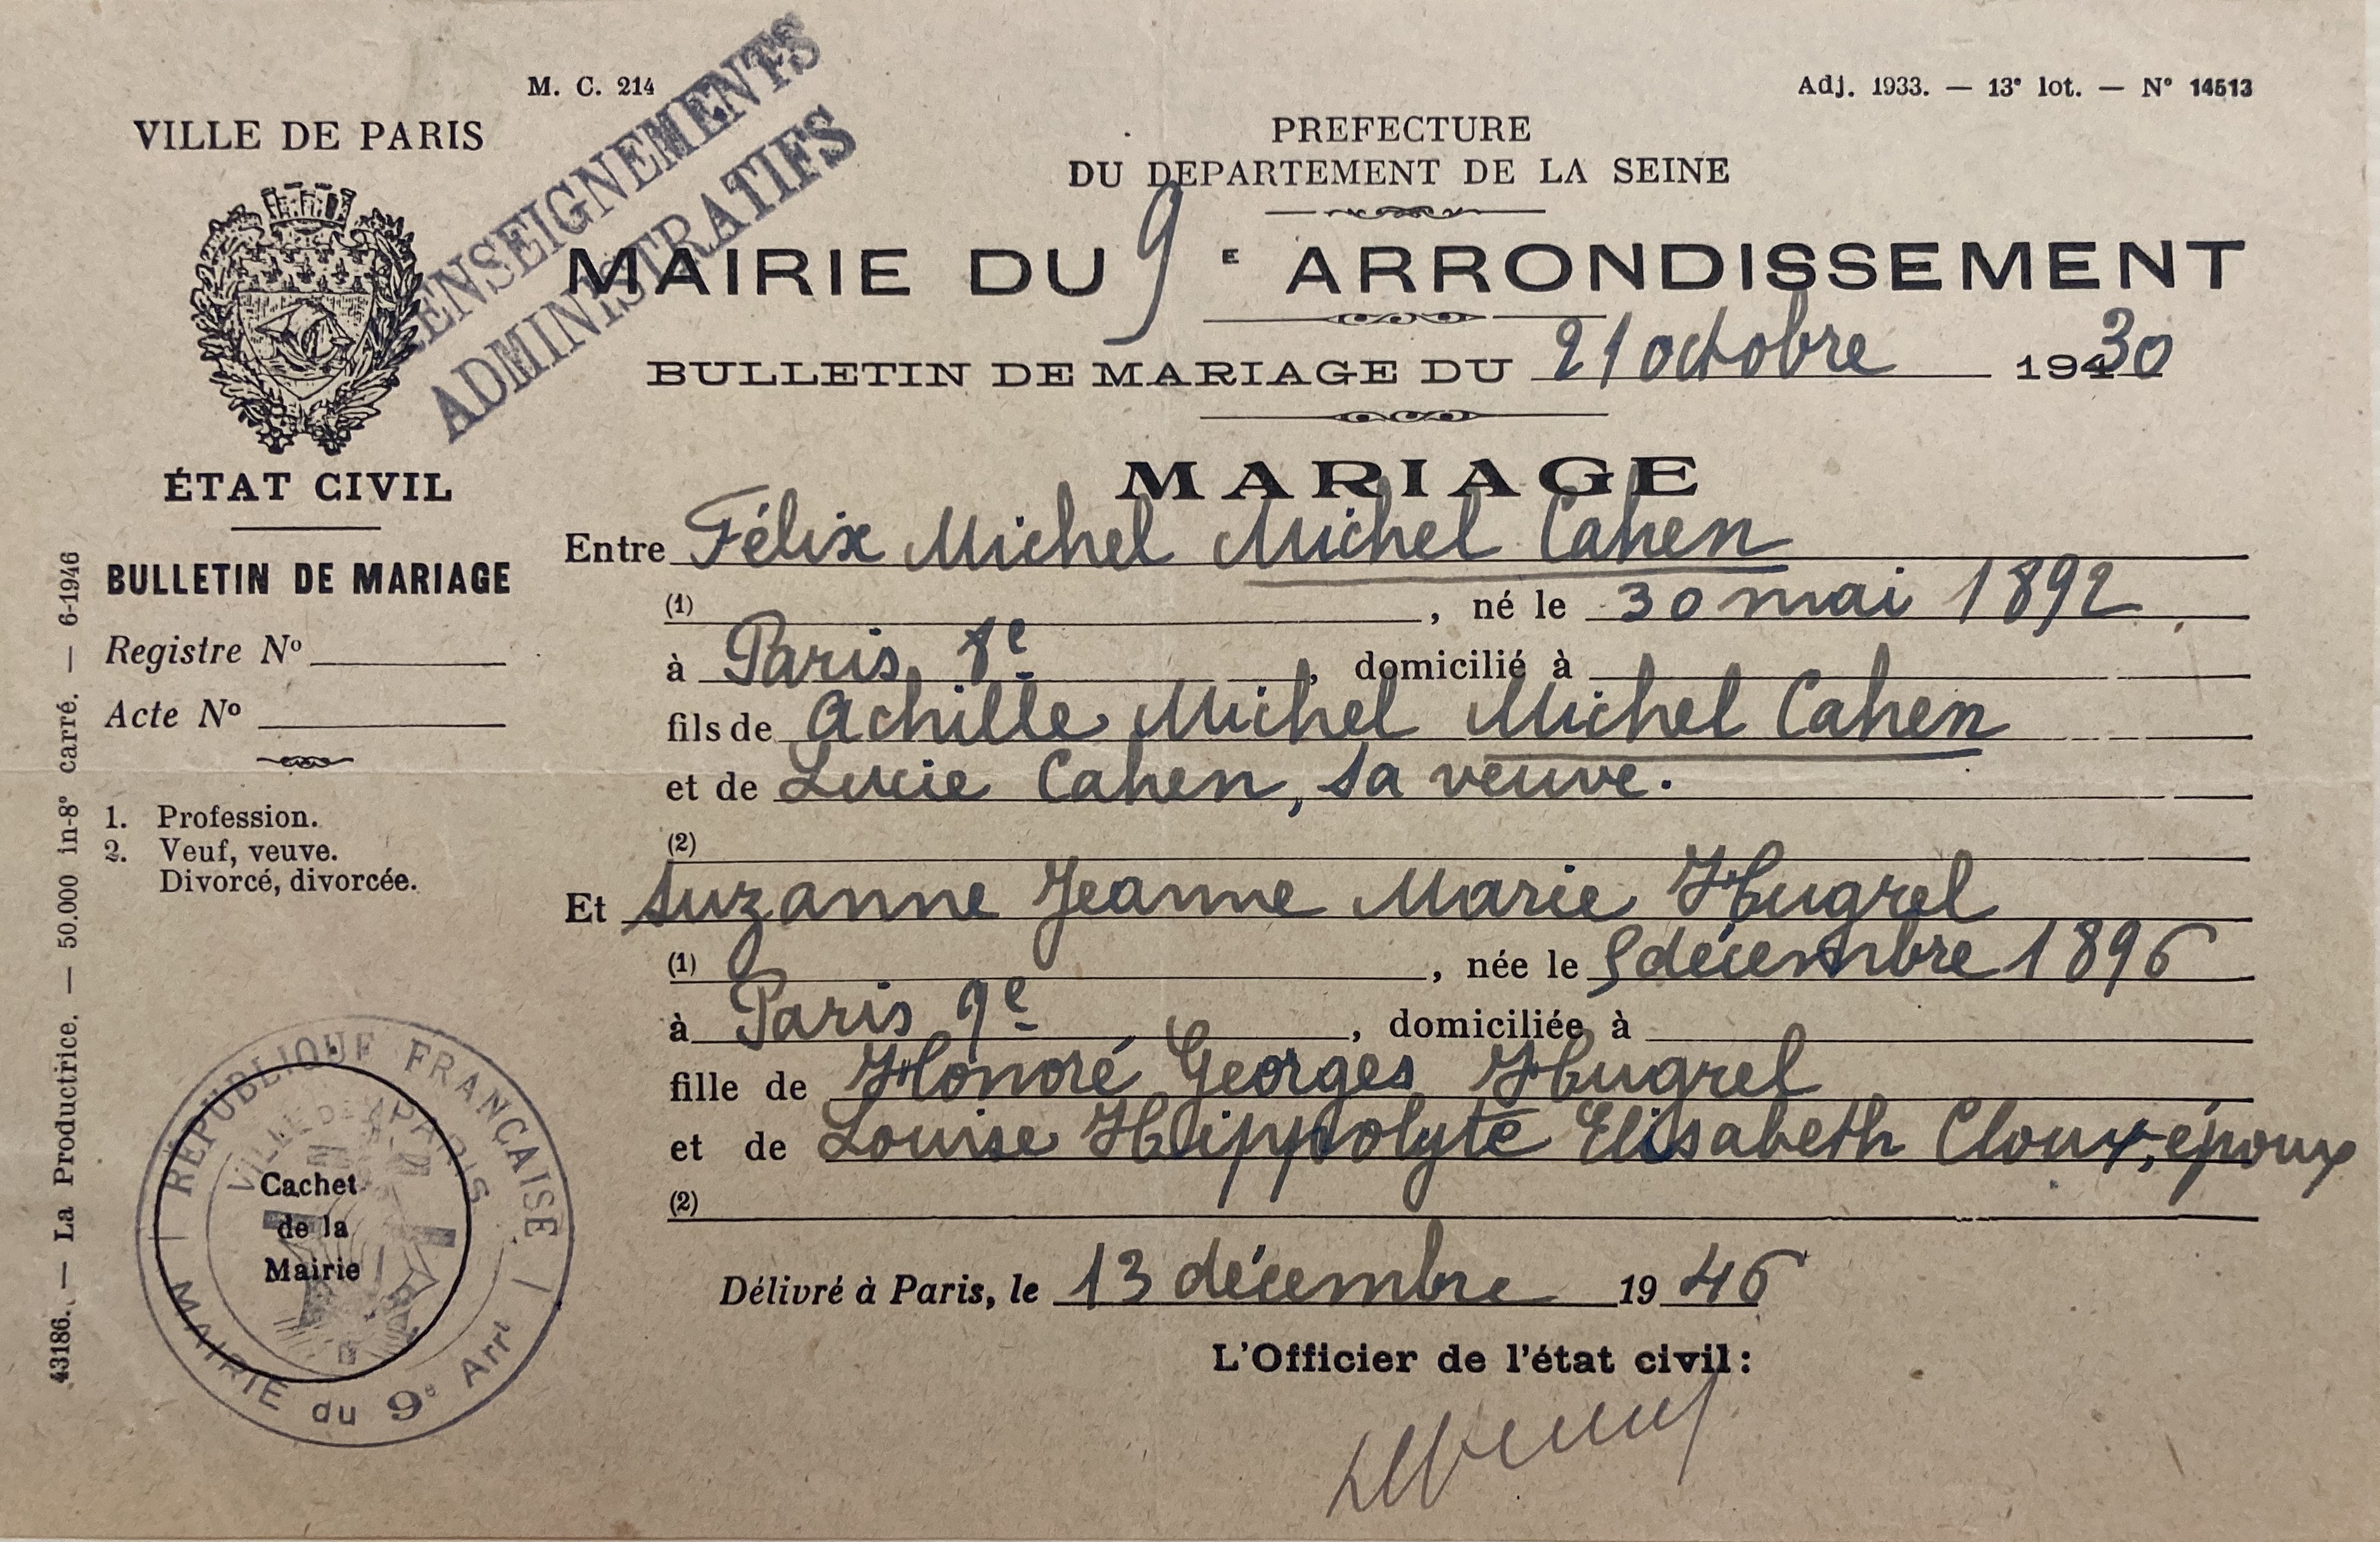 M. C. 214
Adj. 1933. — 13e lot. — N° 14513
VILLE DE PARIS
RENSEIGNEMENTS
ADMINISTRATIFS
PREFECTURE
DU DEPARTEMENT DE LA SEINE
MAIRIE DU 9 E ARRONDISSEMENT
BULLETIN DE MARIAGE DU 21 octobre 19430
ÉTAT CIVIL
BULLETIN DE MARIAGE
Registre No
Acte No
1. Profession.
2. Veuf, veuve.
Divorcé, divorcée.
43186. — La Productrice. — 50.000 in-8° carré. — 6-1946
MARIAGE
Entre Félix Michel Michel Cahen
(1) , né le 30 mai 1892
à Paris, 8e , domicilié à
fils de Achille Michel Michel Cahen
et de Lucie Cahen, sa veuve.
(2)
Et Suzanne Jeanne Marie Hugrel
(1) , née le 5 décembre 1896
à Paris 9e , domiciliée à
fille de Honoré Georges Hugrel
et de Louise Hippolyte Elisabeth Cloux, époux
(2)
Délivré à Paris, le 13 décembre 1946
L'Officier de l'état civil:
RÉPUBLIQUE FRANÇAISE
VILLE DE PARIS
Cachet
de la
Mairie
MAIRIE du 9e Arrt